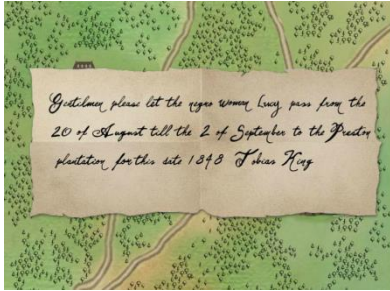 Gentilmen please let the negro women Lucy pass from the
20 of August till the 2 of September to the Preston
plantation for this date 1848 Tobias King